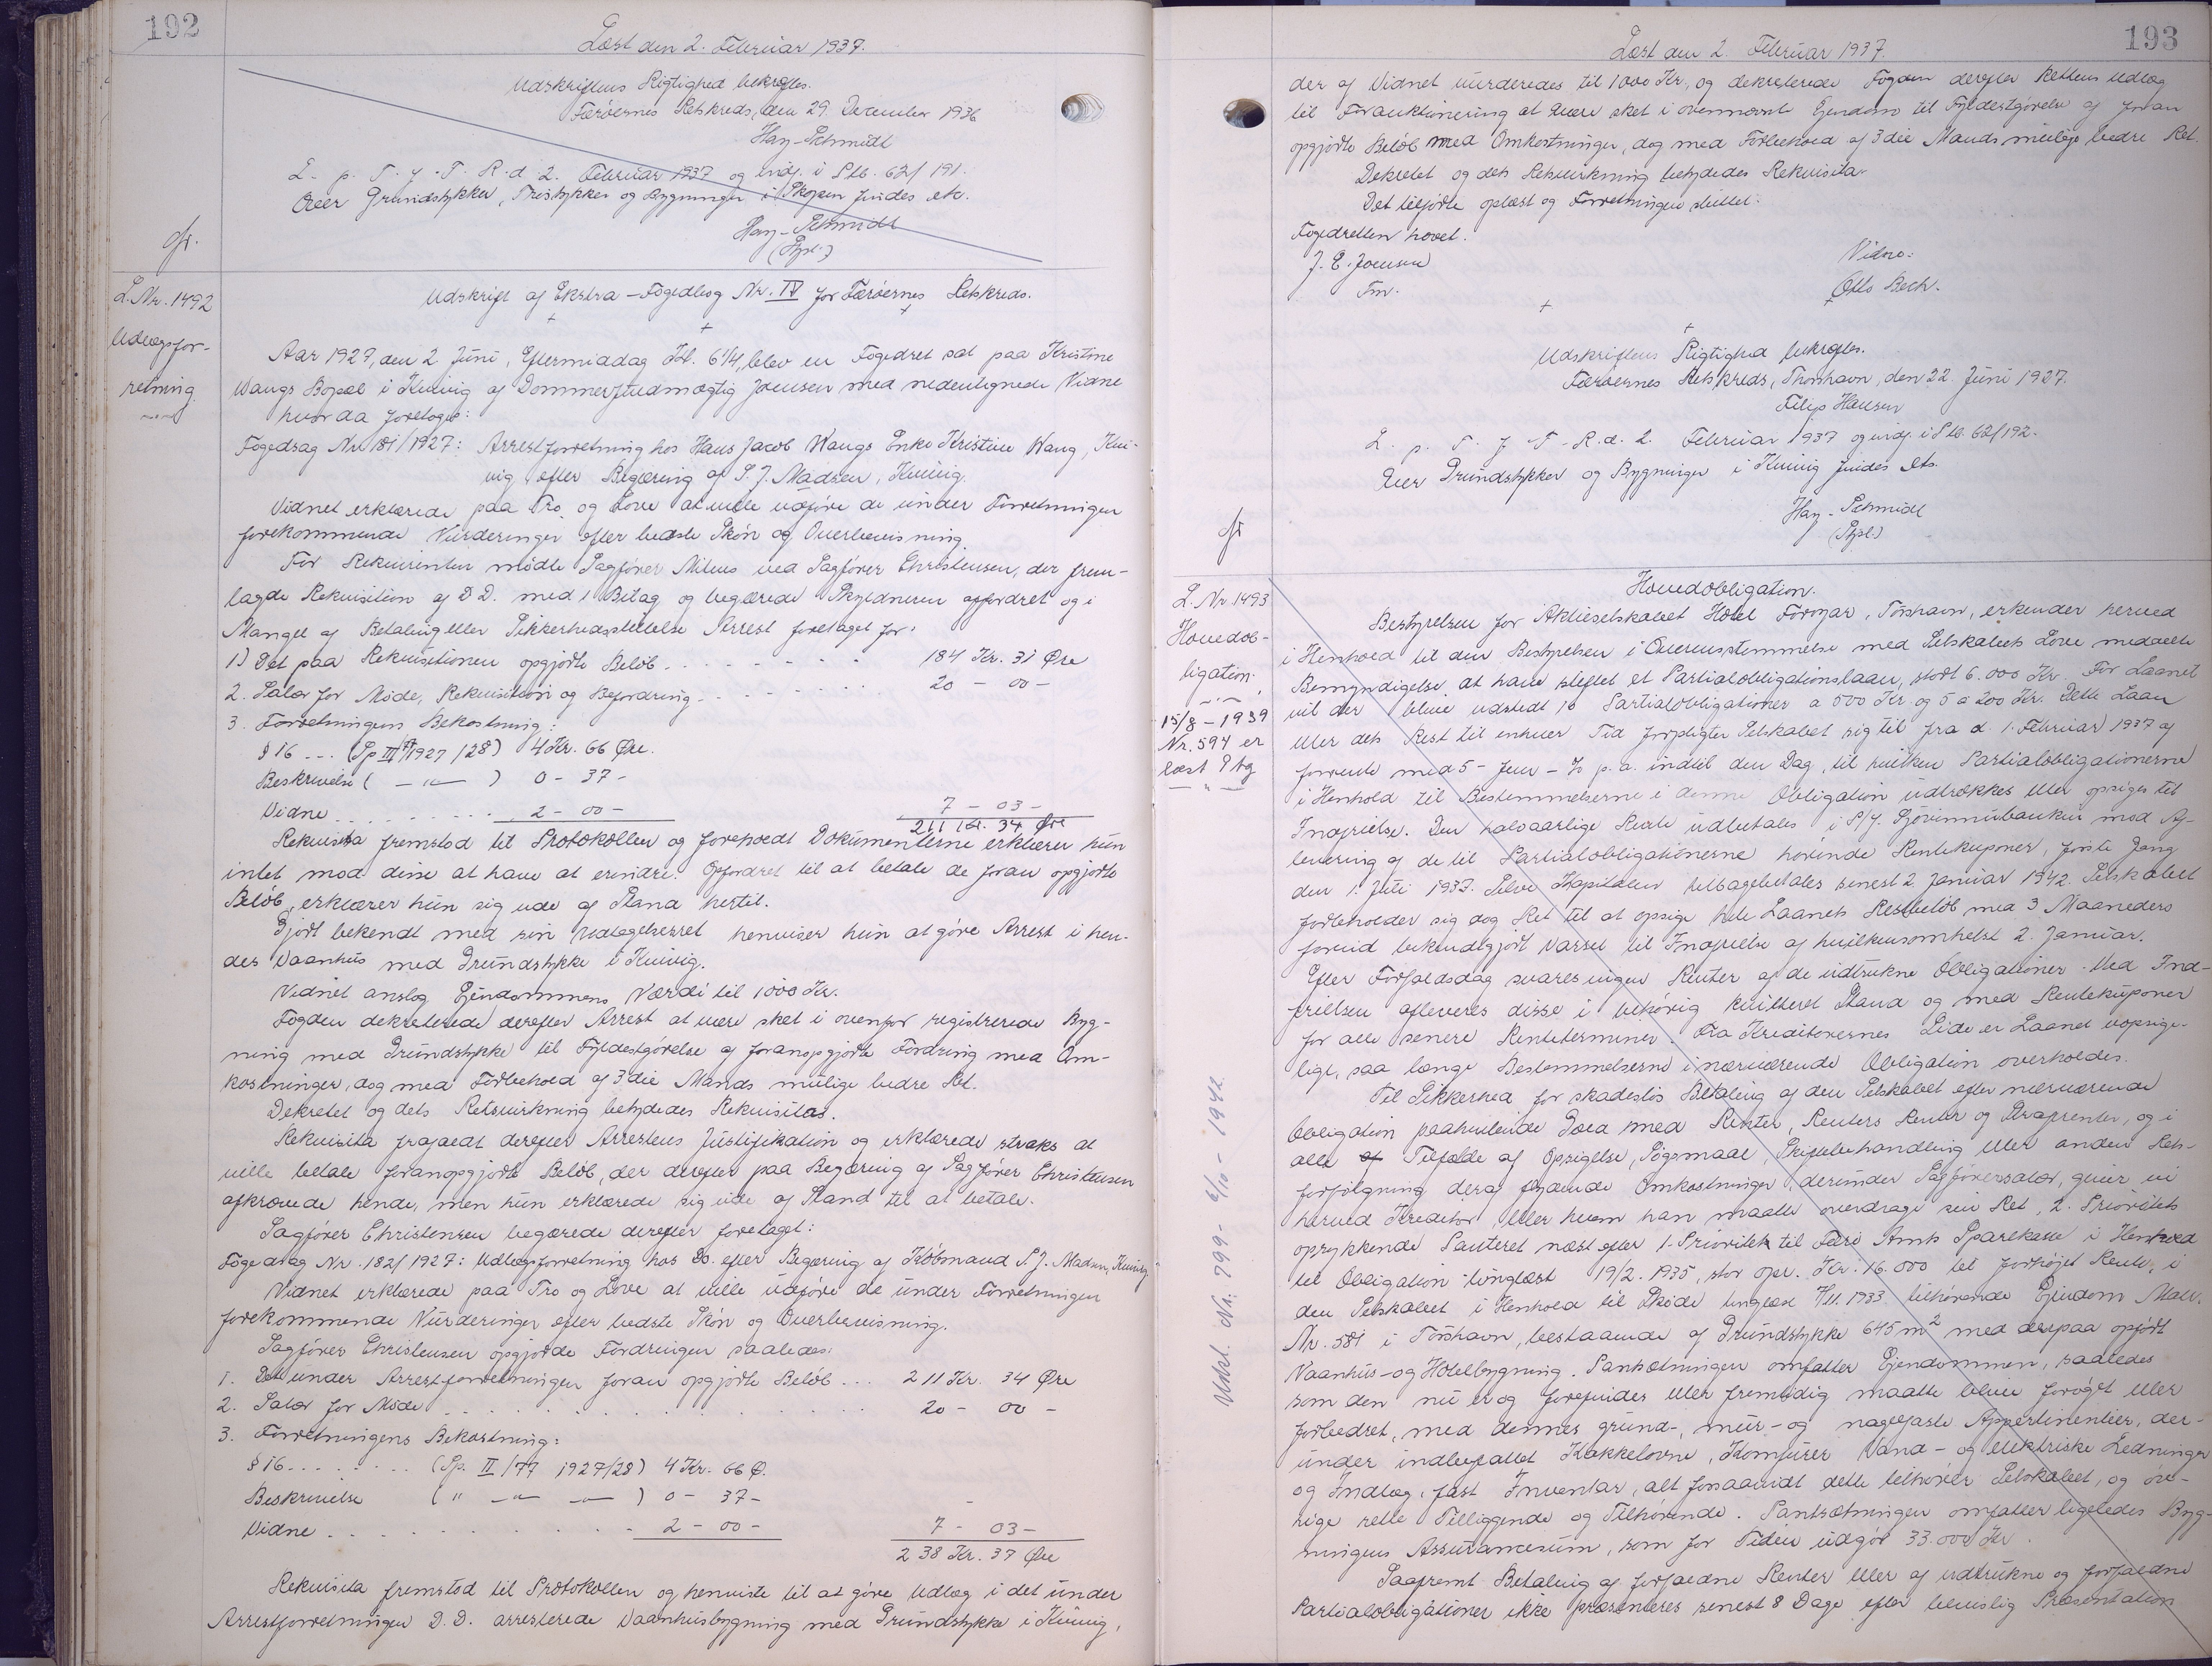 192
Læst den 2. Februar 1937.
Udskriftens Rigtighed bekræftes.
Færøernes Retskreds, den 29. December 1936
Hay-Schmidt
L. p. T. f. F. R. d. 2. Februar 1937 og indf. i S.Pb. 62/191.
Over Grundstykker, Træstykker og Bygninger i Skopen findes etc.
Hay-Schmidt
L. Nr. 1492
Udlægsfor-
retning
Udskrift af Ekstra-Fogedbog Nr. IV for Færøernes Retskreds.
Aar 1927, den 2 Juni, Eftermiddag Kl. 6 1/4, blev en Fogedret sat paa Kristine
Wangs Bopæl i Kvivig af Dommerfuldmægtig Joensen med nedentegnede Vidne
hvor da foretoges:
Fogedsag Nr. 181/1927: Arrestforretning hos Hans Jacob Wangs Enke Kristine Wang, Kvi-
vig efter Begæring af S. J. Madsen, Kvivig.
Vidnet erklærede paa Tro og Love at ville udføre de under Forretningen
forekommende Vurderinger efter bedste Skøn og Overbevisning.
For Rekvirenten mødte Sagfører Mitens ved Sagfører Christensen, der frem-
lagde Rekvisition af D. D. med 1 Bilag og begærede Skyldneren opfordret og i
Mangel af Betaling eller Sikkerhedsstillelse Arrest foretaget for:
1) Det paa Rekvisitionen opgjorte Beløb. . . . . . . . 184 Kr. 31 Øre
2. Salær for Møde, Rekvisition og Befordring. . . . . . 20 - 00 -
3. Forretningens Bekostning:
§ 16 ... (Sp III 1927/28) 4 Kr. 66 Øre.
Beskrivelse ( — " — ) 0 - 37 -
Vidne . . . . . . . . . 2 - 00 - 7 - 03 -
211 Kr. 34 Øre
Rekvisita fremstod til Protokollen og foreholdt Dokumenterne erklærer hun
intet mod disse at have at erindre. Opfordret til at betale de foran opgjorte
Beløb, erklærer hun sig ude af Stand hertil.
Gjort bekendt med sin Udtagelsesret henviser hun at gøre Arrest i hen-
des Vaanhus med Grundstykke i Kvivig.
Vidnet anslog Ejendommens Værdi til 1000 Kr.
Fogden dekreterede derefter Arrest at være sket i ovenfor registrerede Byg-
ning med Grundstykke til Fyldestgørelse af foranopgjorte Fordring med Om-
kostninger, dog med Forbehold af 3die Mands mulige bedre Ret.
Dekretet og dets Retsvirkning betydedes Rekvisitas.
Rekvisita frafaldt derefter Arrestens Justifikation og erklærede straks at
ville betale foranopgjorte Beløb, der derefter paa Begæring af Sagfører Christensen
afkrævede hende, men hun erklærede sig ude af Stand til at betale.
Sagfører Christensen begærede derefter foretaget:
Fogedsag Nr. 182/1927: Udlægsforretning hos Do. efter Begæring af Købmand S. J. Madsen, Kvivig
Vidnet erklærede paa Tro og Love at ville udføre de under Forretningen
forekommende Vurderinger efter bedste Skøn og Overbevisning.
Sagfører Christensen opgjorde Fordringen saaledes:
1. Det under Arrestforretningen foran opgjorte Beløb ... 211 Kr. 34 Øre
2. Salær for Møde . . . . . . . . . . 20 - 00 -
3. Forretningens Bekostning:
§ 16. . . . . . . . (Sp. II/77 1927/28) 4 Kr. 66 Ø.
Beskrivelse ( " — " — " — ) 0 - 37 -
Vidne . . . . . . . . . . 2 - 00 - 7 - 03 -
238 Kr. 37 Øre
Rekvisita fremstod til Protokollen og henviste til at gøre Udlæg i det under
Arrestforretningen D. D. arresterede Vaanhusbygning med Grundstykke i Kvivig,
193
Læst den 2. Februar 1937.
der af Vidnet vurderedes til 1000 Kr, og dekreterede Fogden derefter Rettens Udlæg
til Forauktionering at være sket i ovennævnte Ejendom til Fyldestgørelse af foran
opgjorte Beløb med Omkostninger, dog med Forbehold af 3die Mands mulige bedre Ret.
Dekretet og dets Retsvirkning betydedes Rekvisita.
Det tilførte oplæst og Forretningen sluttet.
Fogedretten hævet.
J. E. Joensen
Fm.
Vidne:
Otto Bech.
Udskriftens Rigtighed bekræftes.
Færøernes Retskreds, Thorshavn, den 22. Juni 1927.
Filip Hansen
L. p. T. f. F. R. d. 2. Februar 1937 og indf. i S.Pb. 62/192.
Over Grundstykker og Bygninger i Kvivig findes etc.
Hay-Schmidt
L. Nr. 1493
Hovedob-
ligation.
15/8 - 1939
Nr. 594 er
læst Ptg
Udsl. Nr. 799 - 6/10 - 1942.
Hovedobligation.
Bestyrelsen for Aktieselskabet Hotel Føroyar, Tórshavn, erkender herved
i Henhold til den Bestyrelsen i Overensstemmelse med Selskabets Love meddelte
Bemyndigelse at have stiftet et Partialobligationslaan, stort 6.000 Kr. For Laanet
vil der blive udstedt 10 Partialobligationer a 500 Kr. og 5 a 200 Kr. Dette Laan
eller dets Rest til enhver Tid forpligter Selskabet sig til fra d. 1. Februar 1937 at
forrente med 5 - fem - % p. a. indtil den Dag, til hvilken Partialobligationerne
i Henhold til Bestemmelserne i denne Obligation udtrækkes eller opsiges til
Indfrielse. Den halvaarlige Rente udbetales i P/f. Sjóvinnubankin mod Af-
levering af de til Partialobligationerne hørende Rentekuponer, første Gang
den 1. Juli 1937. Selve Kapitalen tilbagebetales senest 2 Januar 1942. Selskabet
forbeholder sig dog Ret til at opsige hele Laanets Restbeløb med 3 Maaneders
forud bekendtgjort Varsel til Indfrielse af hvilkensomhelst 2. Januar.
Efter Forfaldsdag svares ingen Renter af de udtrukne Obligationer. Ved Ind-
frielsen afleveres disse i behørig kvitteret Stand og med Rentekuponer
for alle senere Renteterminer. Fra Kreditorernes Side er Laanet uopsige-
lige, saa længe Bestemmelserne i nærværende Obligation overholdes.
Til Sikkerhed for skadesløs Betaling af den Selskabet efter nærværende
Obligation paahvilende Gæld med Renter, Renters Renter og Strafrenter, og i
alle Tilfælde af Opsigelse, Søgsmaal, Skiftebehandling eller anden Rets-
forfølgning deraf flydende Omkostninger, derunder Sagførersalær, giver vi
herved Kreditor, eller hvem han maatte overdrage sin Ret, 2. Prioritets
oprykkende Panteret næst efter 1. Prioritet til Færø Amts Sparekasse i Henhold
til Obligation tinglæst 19/2. 1935, stor opr. Kr. 16.000 til forhøjet Rente, i
den Selskabet i Henhold til Skøde tinglæst 7/11. 1933 tilhørende Ejendom Matr.
Nr. 581 i Tórshavn, bestaaende af Grundstykke 645 m² med derpaa opført
Vaanhus- og Hotelbygning. Pantsætningen omfatter Ejendommen, saaledes
som den nu er og forefindes eller fremtidig maatte blive forøget eller
forbedret, med dennes grund-, mur- og nagelfaste Appertinentier, der-
under indbefattet Kakkelovne, Komfurer, Vand- og elektriske Ledninger
og Indlæg, fast Inventar, alt forsaavidt dette tilhører Selskabet, og øv-
rige rette Tilliggende og Tilhørende. Pantsætningen omfatter ligeledes Byg-
ningens Assurancesum, som for Tiden udgør 33.000 Kr.
Saafremt Betaling af forfaldne Renter eller af udtrukne og forfaldne
Partialobligationer ikke præsteres senest 8 Dage efter bevislig Præsentation